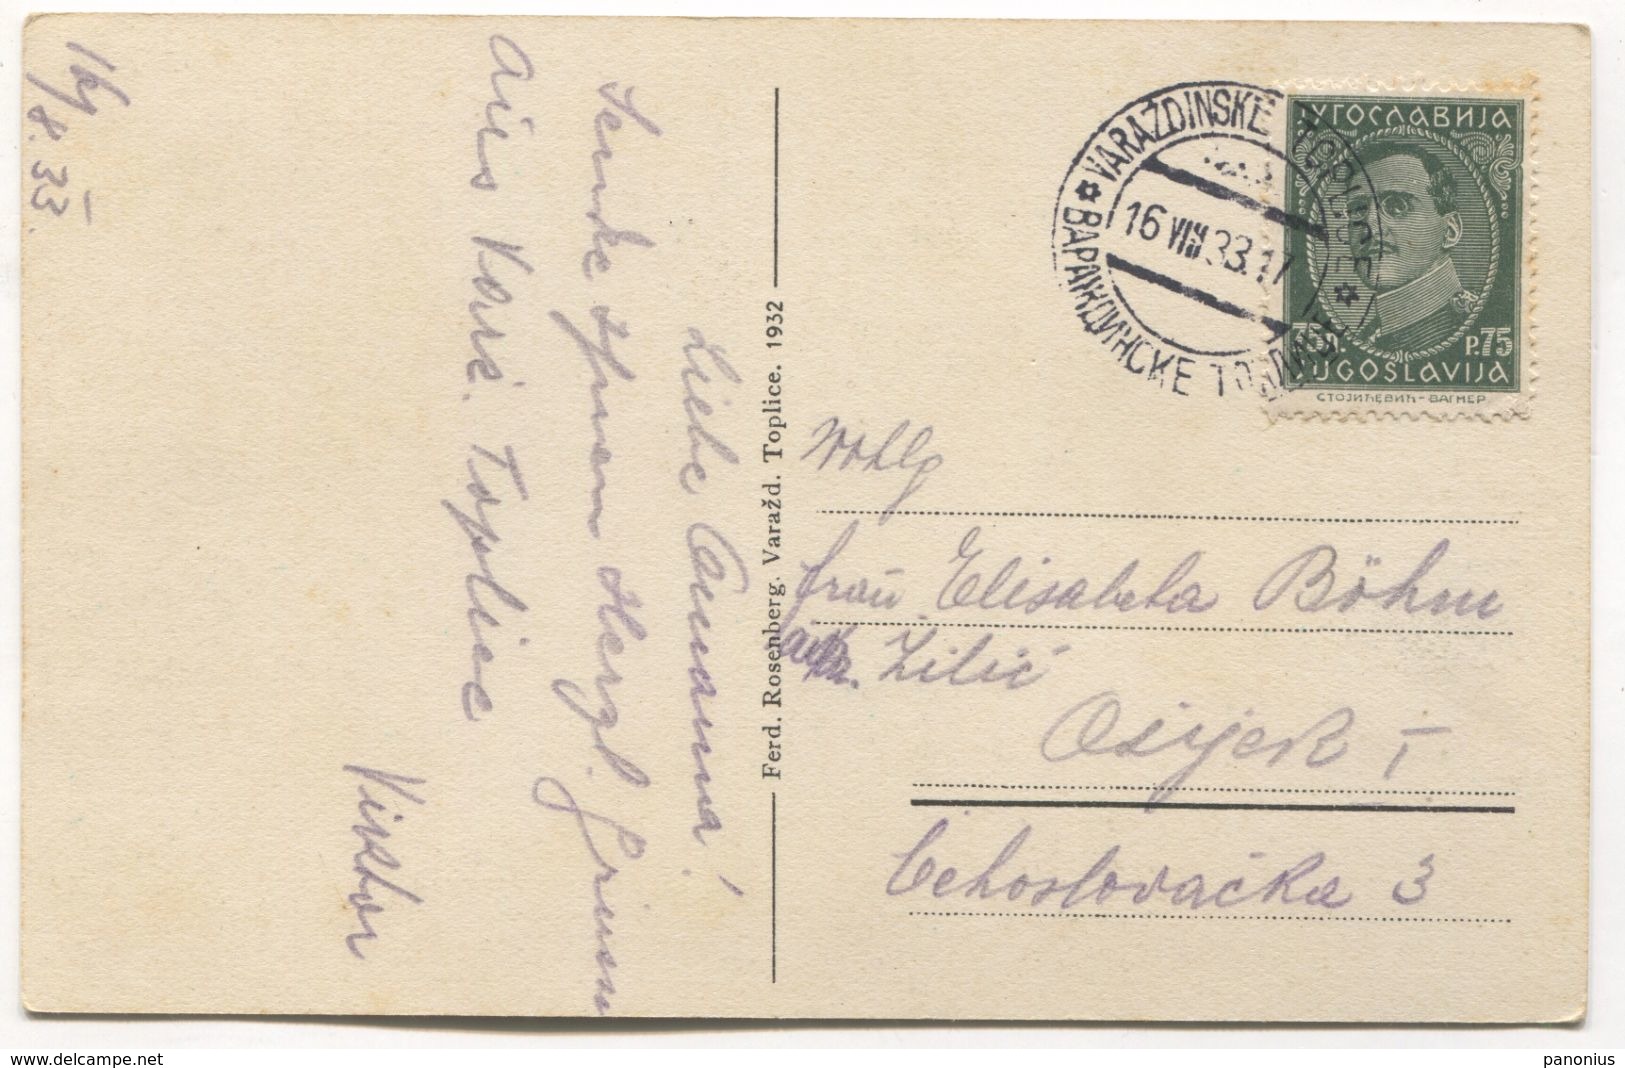 16/8.33.
Liebe Omama!
Sende Ihnen Herzl. Grüsse
aus Varš. Toplice
Viktor
Ferd. Rosenberg. Varažd. Toplice. 1932
VARAŽDINSKE TOPLICE
ВАРАЖДИНСКЕ ТОПЛИЦЕ
16 VIII 33.17
ЈУГОСЛАВИЈА
P.75
JUGOSLAVIJA
СТОЈИЋЕВИЋ-ВАГНЕР
Wohlg
Frau Elisabeta Böhm
Zilić
Osijek I
Čehoslovačka 3
www.delcampe.net
panonius